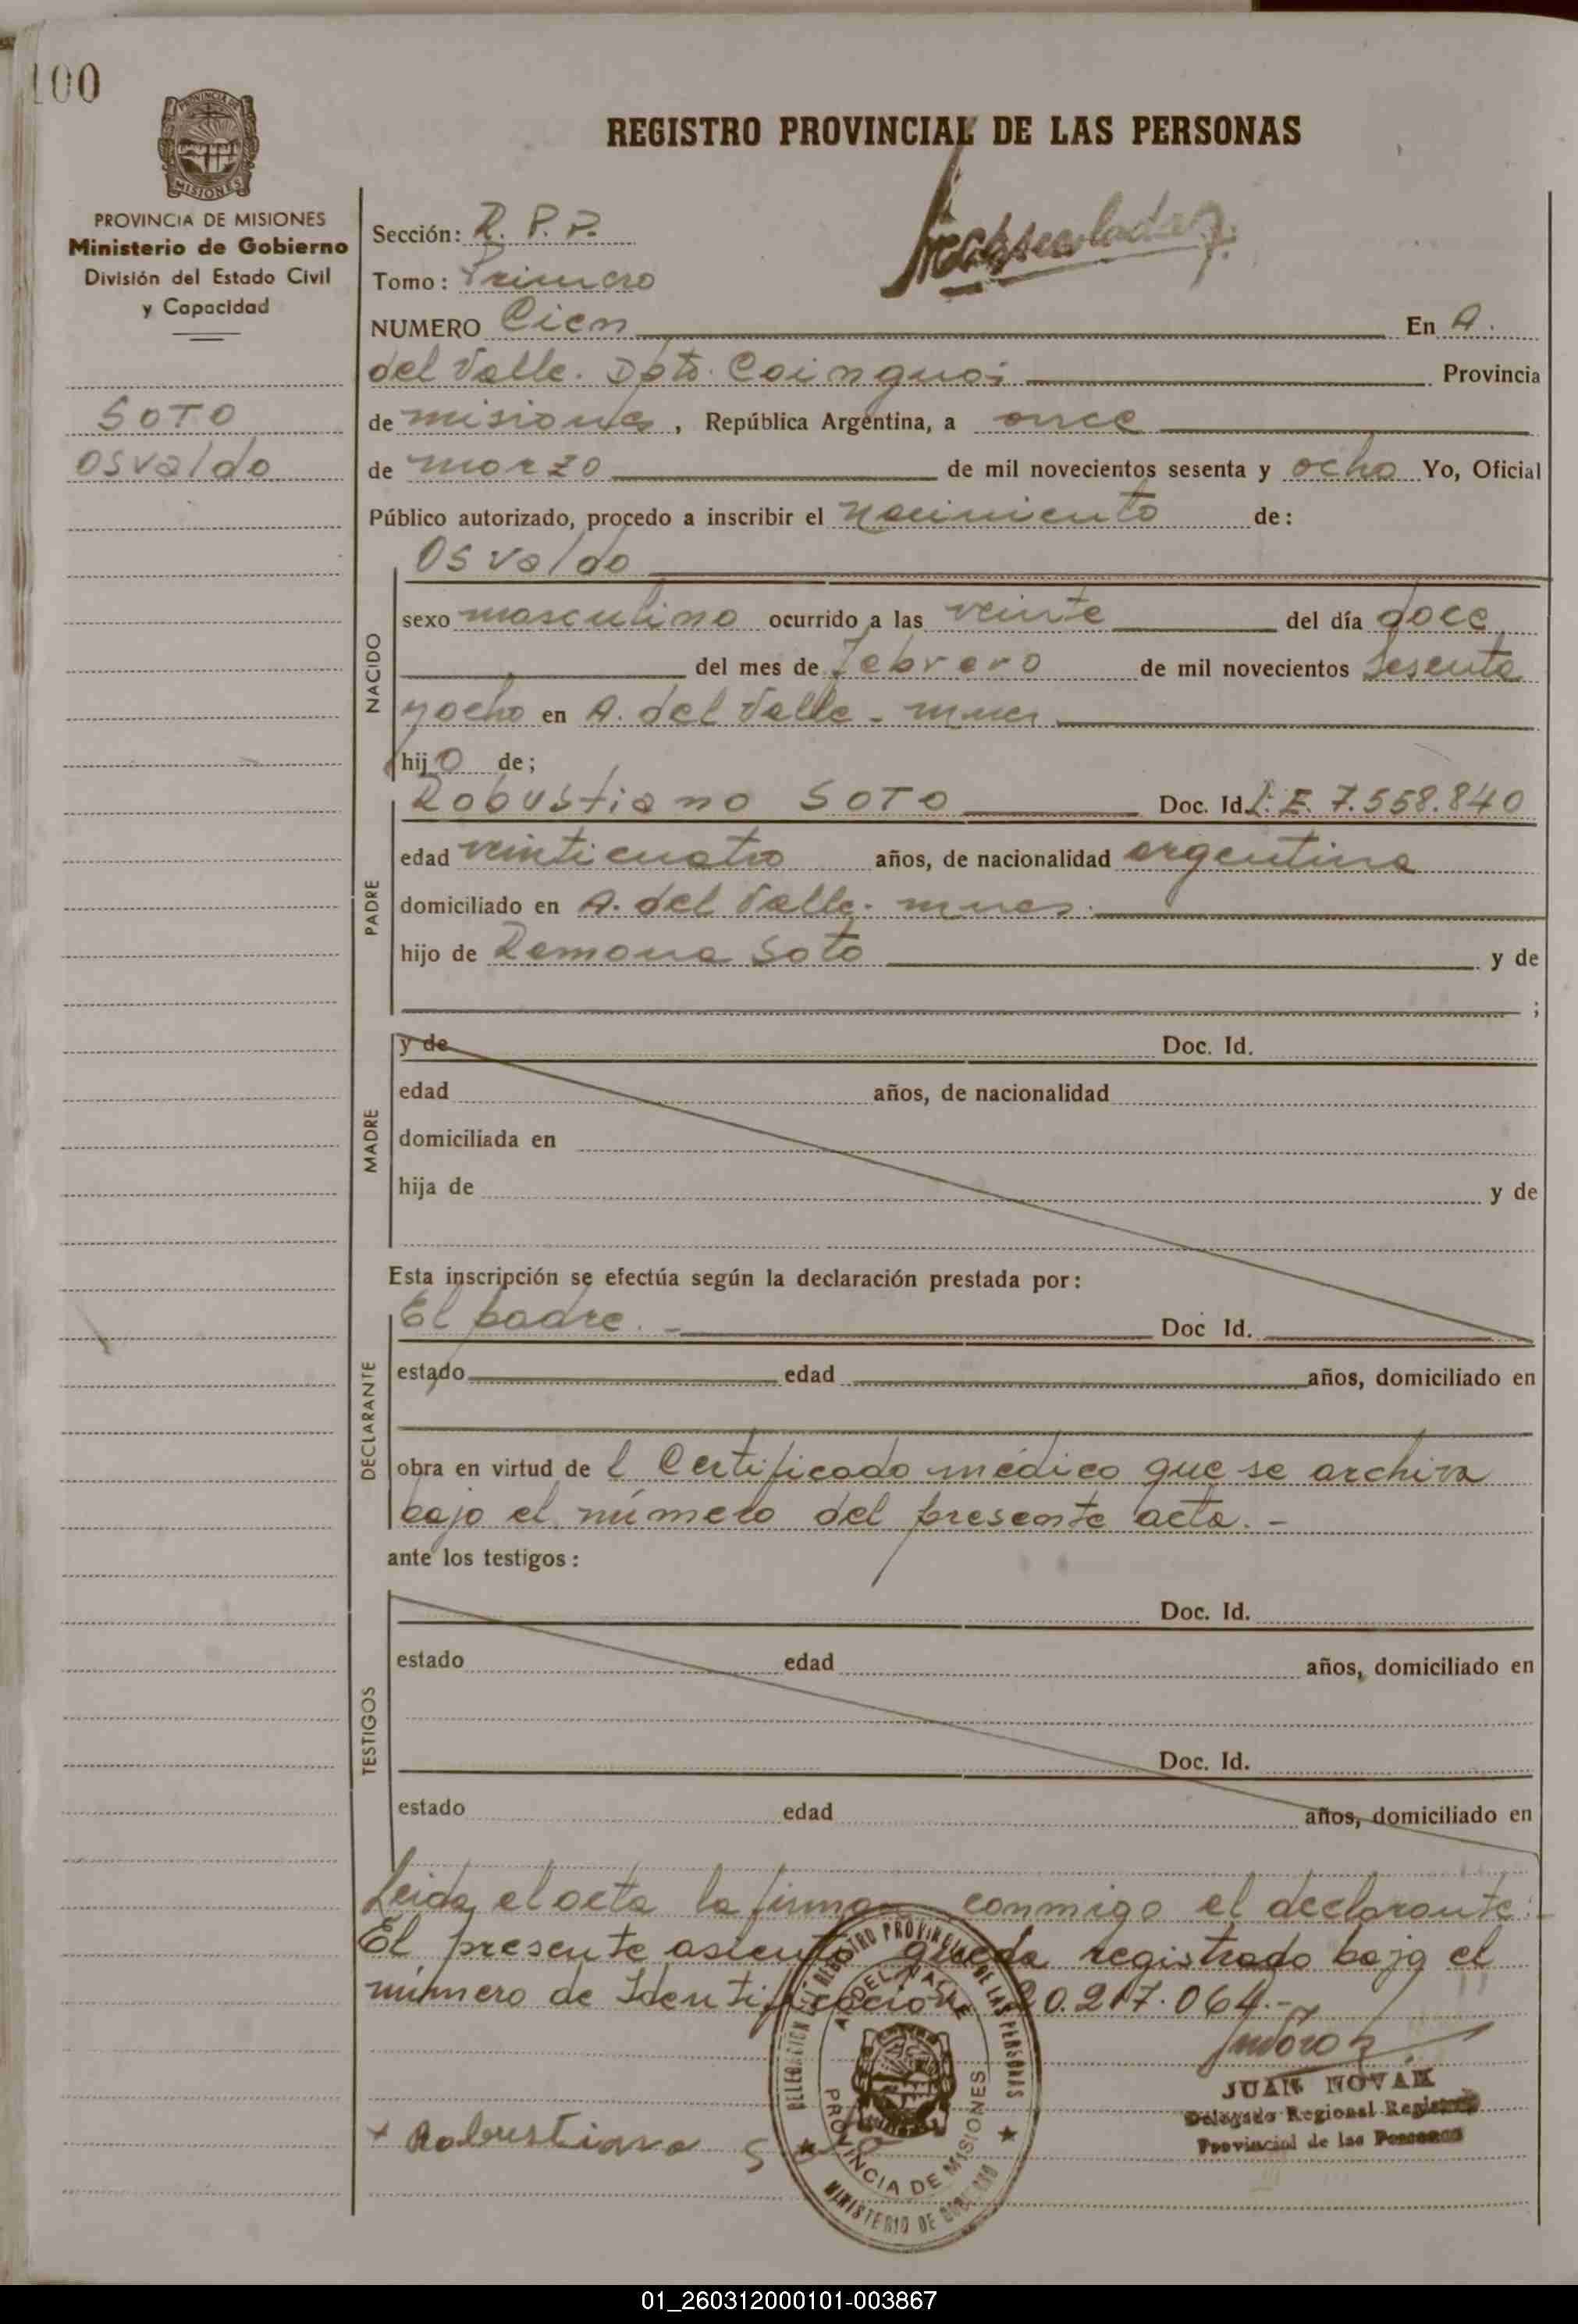 100
PROVINCIA DE MISIONES
PROVINCIA DE MISIONES
Ministerio de Gobierno
División del Estado Civil
y Capacidad
SOTO
Osvaldo
REGISTRO PROVINCIAL DE LAS PERSONAS
Sección: R. P. P.
Tomo: Primero
NUMERO Cien En A.
del Valle. Dpto. Cainguas Provincia
de misiones, República Argentina, a once
de marzo de mil novecientos sesenta y ocho Yo, Oficial
Público autorizado, procedo a inscribir el nacimiento de:
NACIDO
Osvaldo
sexo masculino ocurrido a las veinte del día doce
del mes de febrero de mil novecientos sesenta
y ocho en A. del Valle - mnes
hijo de;
PADRE
Robustiano SOTO Doc. Id. L. E. 7.558.840
edad veinticuatro años, de nacionalidad argentina
domiciliado en A. del Valle. mnes.
hijo de Ramona Soto y de
;
MADRE
y de Doc. Id.
edad años, de nacionalidad
domiciliada en
hija de y de
Esta inscripción se efectúa según la declaración prestada por:
DECLARANTE
El padre. - Doc Id.
estado edad años, domiciliado en
obra en virtud de l Certificado médico que se archiva
bajo el número del presente acta. -
ante los testigos:
TESTIGOS
Doc. Id.
estado edad años, domiciliado en
Doc. Id.
estado edad años, domiciliado en
Leida el acta la firma conmigo el declarante.-
El presente asiento queda registrado bajo el
número de Identificación 20.217.064.-
DELEGACION REGISTRO PROVINCIAL DE LAS PERSONAS
A. DEL VALLE
PROVINCIA DE MISIONES
MINISTERIO DE GOBIERNO
JUAN NOVAK
Delegado Regional Registro
Provincial de las Personas
+ Robustiano Soto
01_260312000101-003867